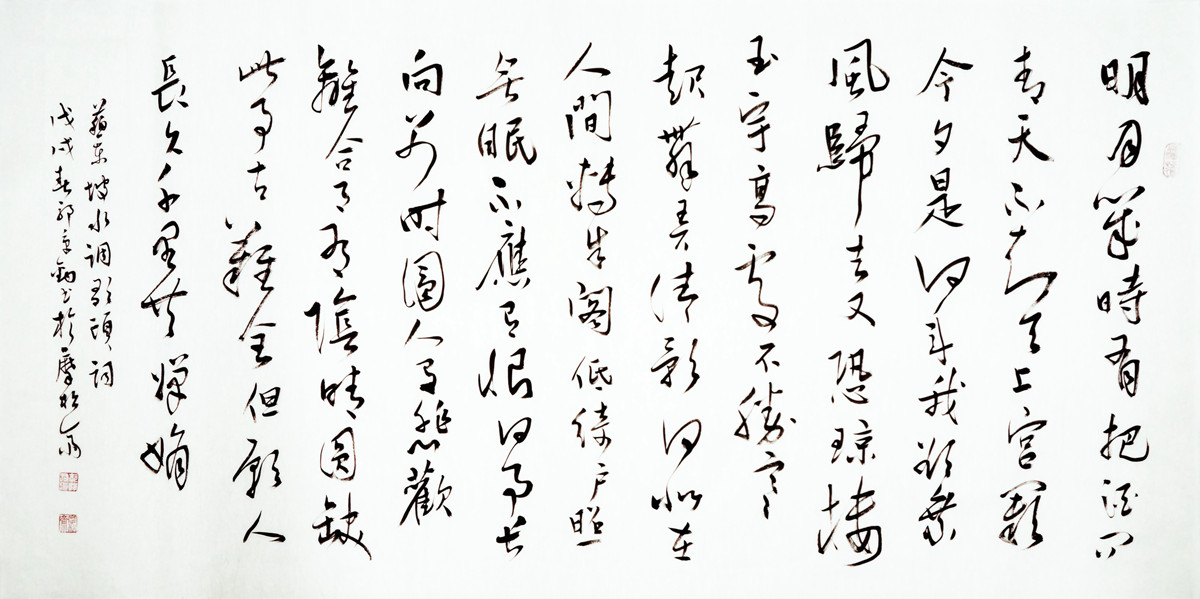 明月幾時有把酒問
青天不知天上宮闕
今夕是何年我欲乘
風歸去又恐琼樓
玉宇高處不勝寒
起舞弄清影何似在
人間轉朱閣低綺戶照
無眠不應有恨何事長
向別時圓人有悲歡
離合月有陰晴圓缺
此事古難全但願人
長久千里共嬋娟
蘇東坡水調歌頭詞
戊戌春郭書於